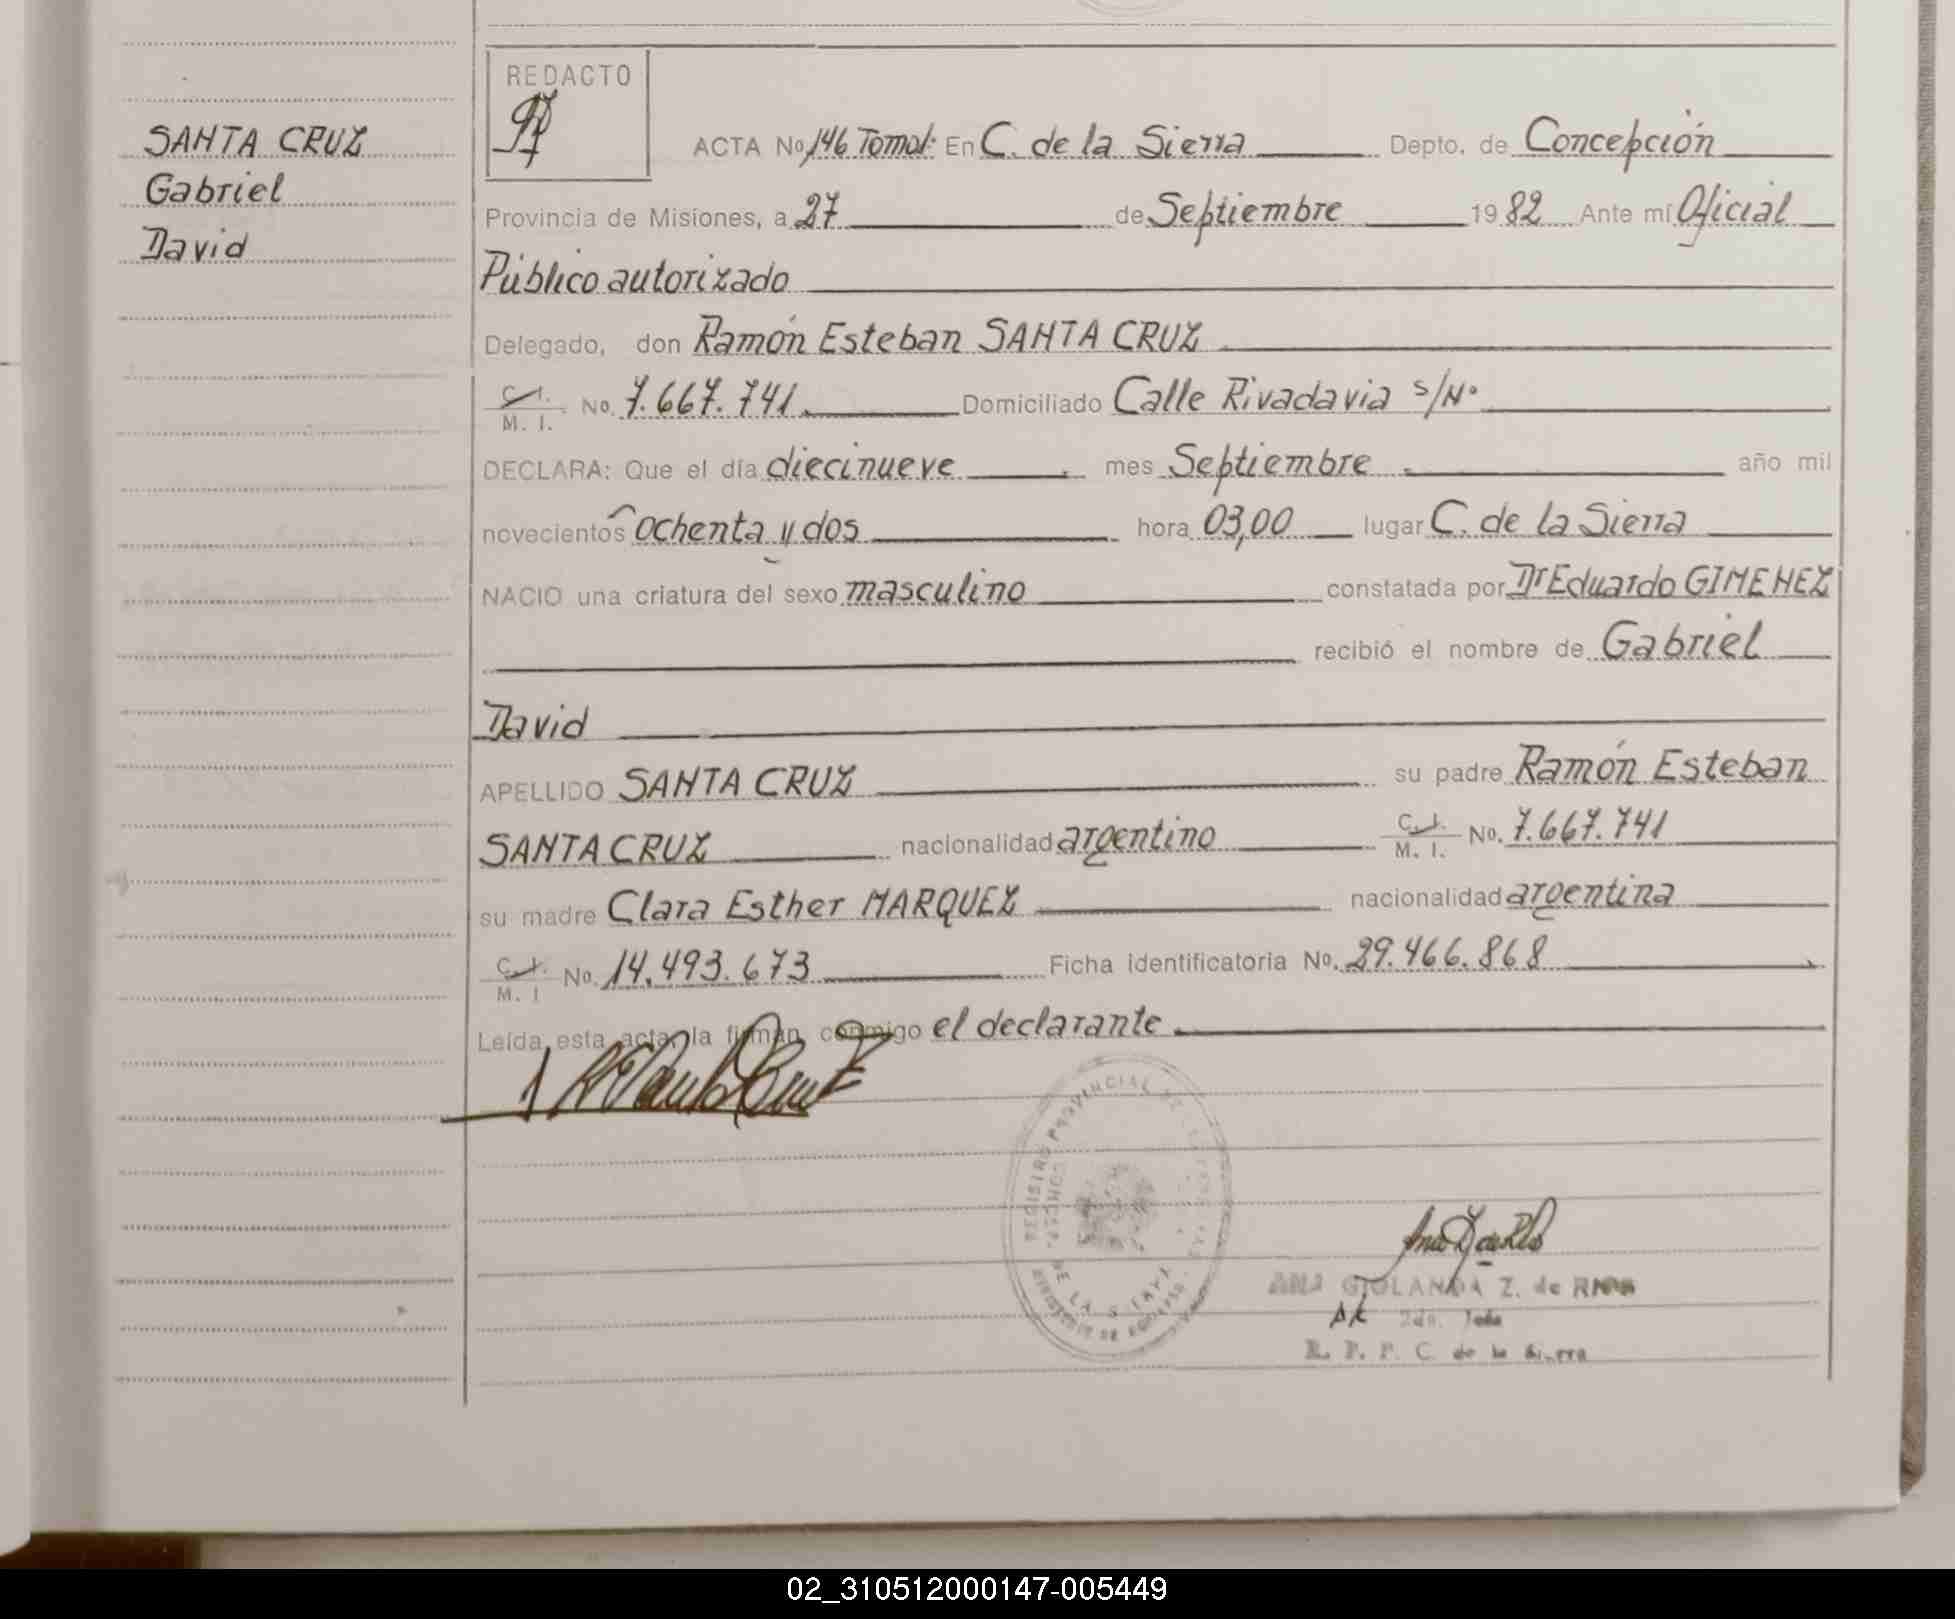 SANTA CRUZ
Gabriel
David
REDACTO
ACTA No 146 Tomo I: En C. de la Sierra Depto. de Concepción
Provincia de Misiones, a 27 de Septiembre 1982 Ante mí Oficial
Público autorizado
Delegado, don Ramón Esteban SANTA CRUZ
C. I. M. I. No. 7.667.741. Domiciliado Calle Rivadavia s/Nº
DECLARA: Que el día diecinueve mes Septiembre año mil
novecientos ochenta y dos hora 03,00 lugar C. de la Sierra
NACIO una criatura del sexo masculino constatada por Dr Eduardo GIMENEZ
recibió el nombre de Gabriel
David
APELLIDO SANTA CRUZ su padre Ramón Esteban
SANTA CRUZ nacionalidad argentino C. I. M. I. No. 7.667.741
su madre Clara Esther MARQUEZ nacionalidad argentina
C. I. M. I No. 14.493.673 Ficha identificatoria No. 29.466.868
Leída esta acta, la firman conmigo el declarante
REGISTRO PROVINCIAL DE LAS PERSONAS
DE LA SIERRA
ANA GIOLANDA Z. de RIOS
R. P. P. C. de la Sierra
02_310512000147-005449